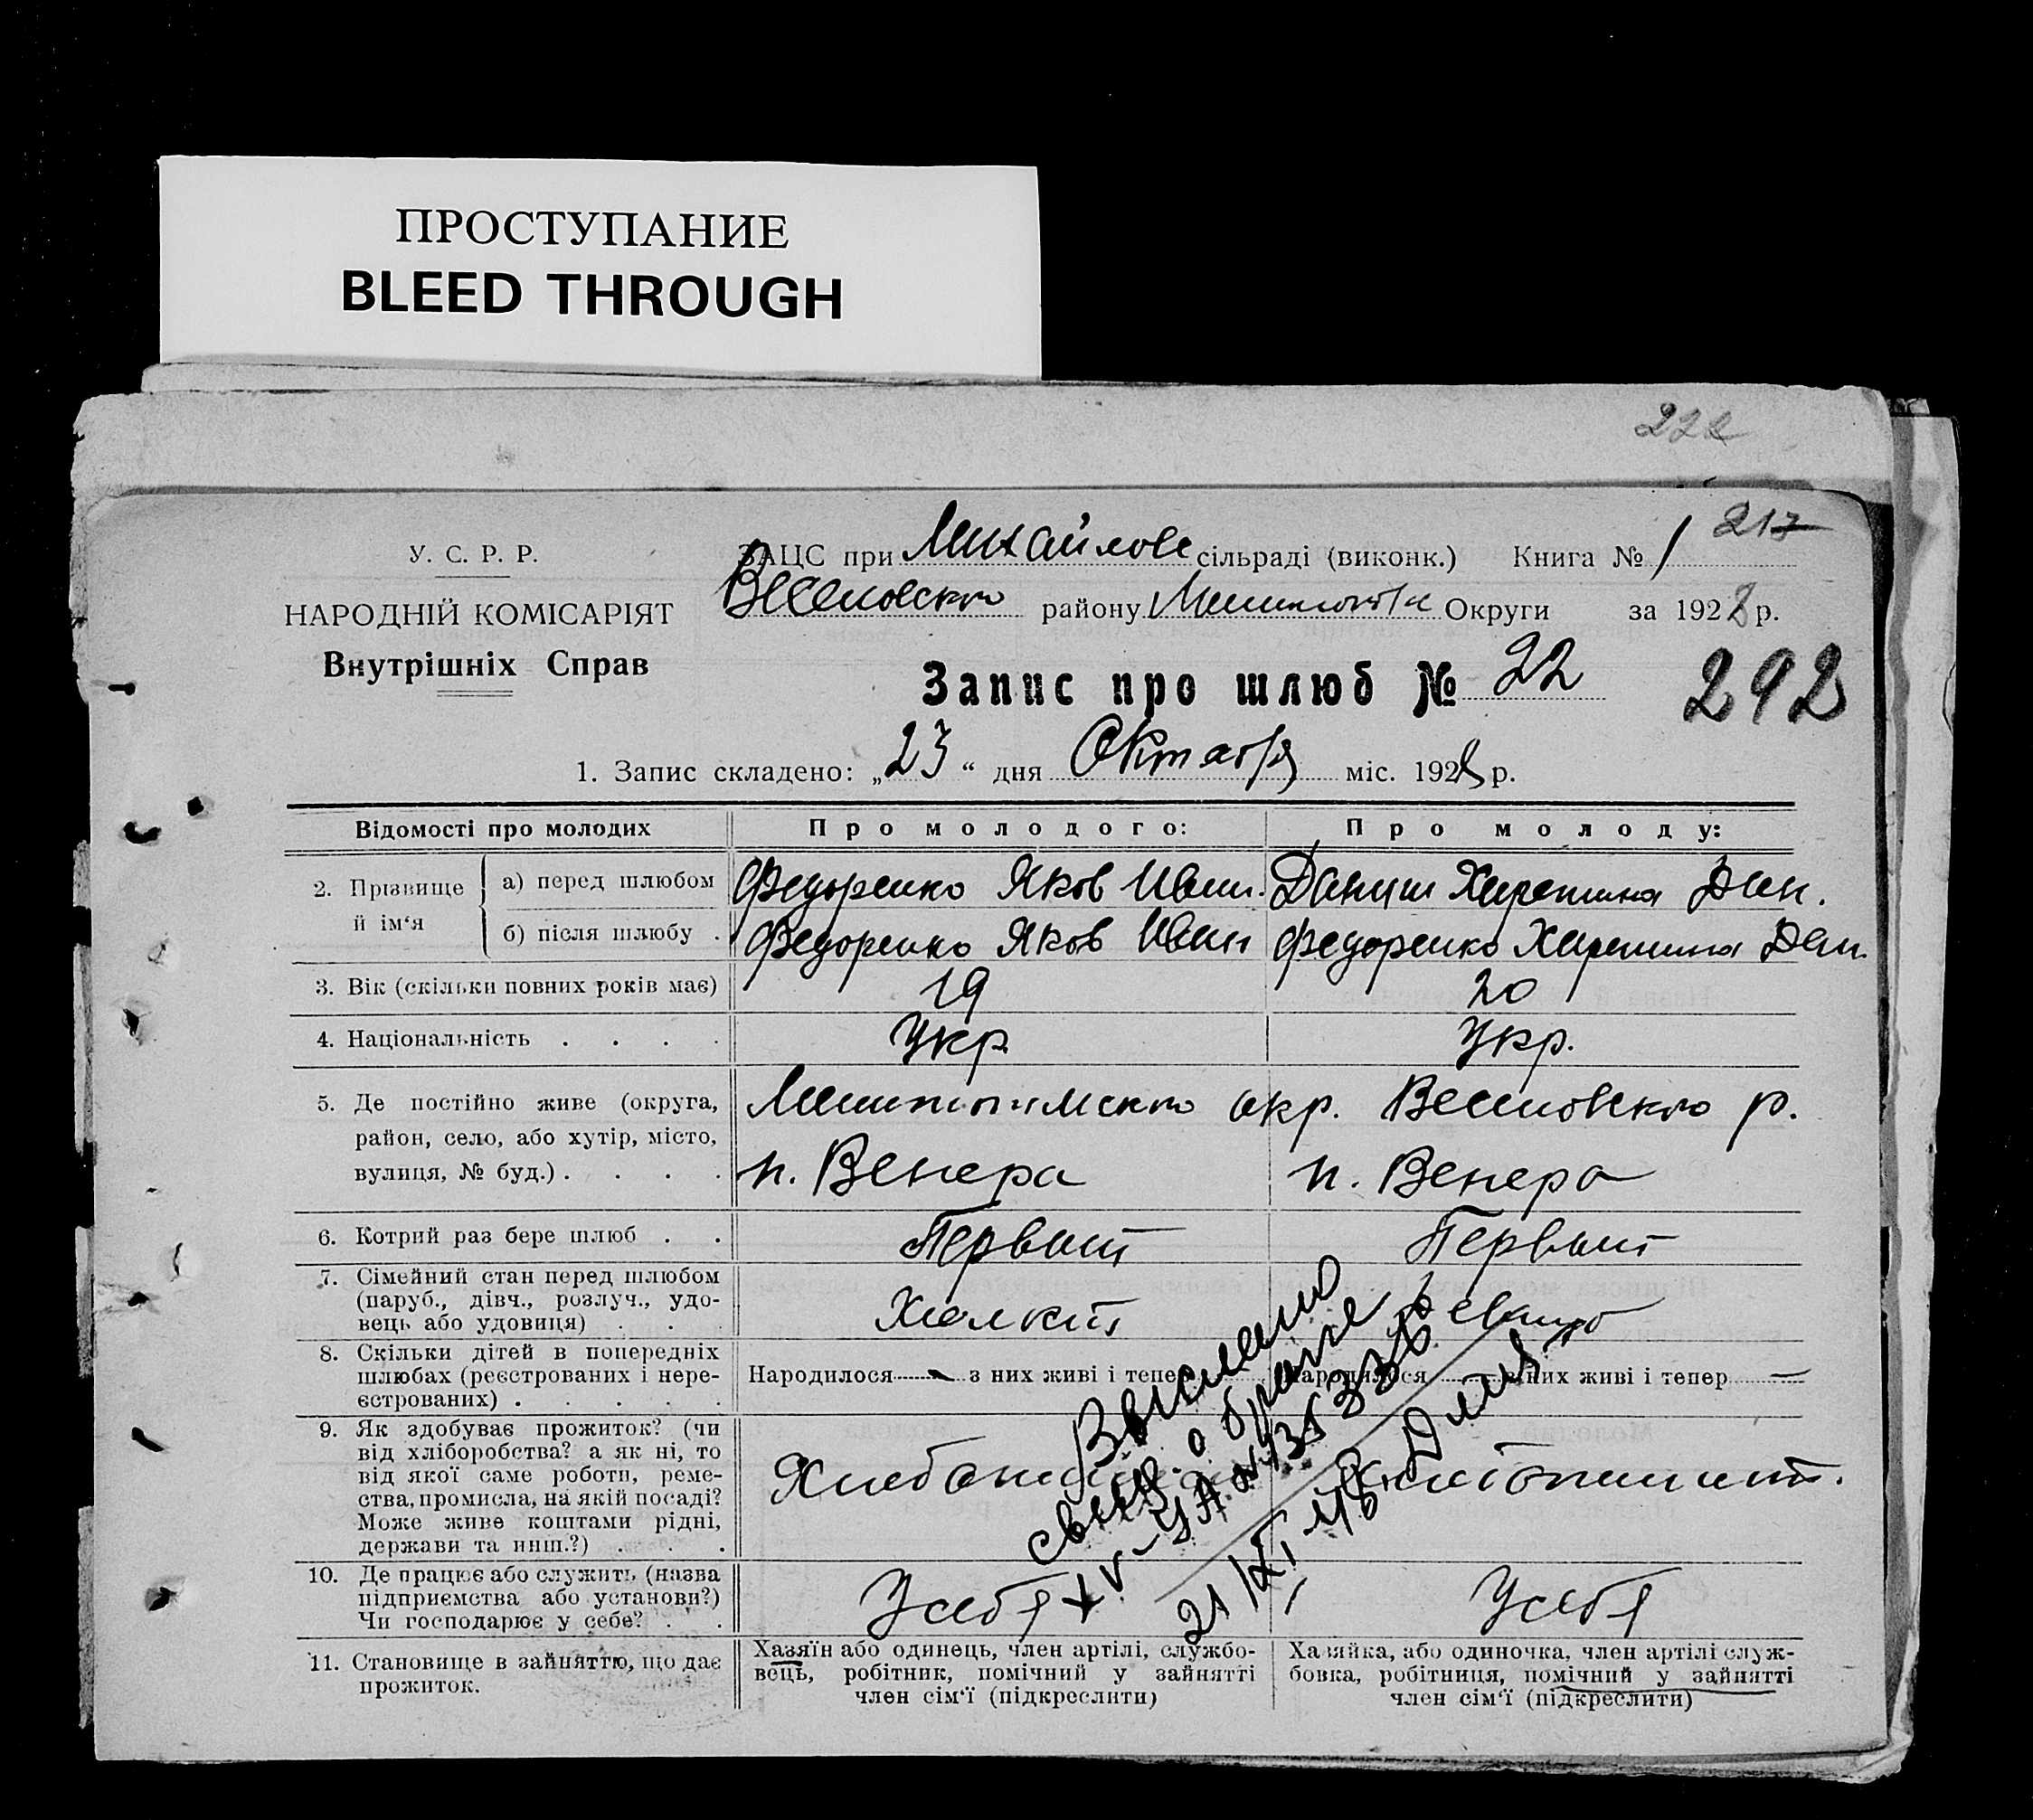 ПРОСТУПАНИЕ
BLEED THROUGH
222
217
У. С. Р. Р.
НАРОДНІЙ КОМІСАРІЯТ
Внутрішніх Справ
ЗАЦС при Михайлове сільраді (виконк.) Книга № 1
Веселовского району Округи за 1928 р.
Запис про шлюб № 22
292
1. Запис складено: „23“ дня Октября міс. 1928 р.
Відомості про молодих
Про молодого:
Про молоду:
2. Прізвище й ім‘я
а) перед шлюбом
Федоренко Яков Иван.
Харетина Дан.
б) після шлюбу .
Федоренко Яков Иван
Федоренко Харетина Дан.
3. Вік (скільки повних років має)
19
20
4. Національність . . . .
Укр
Укр.
5. Де постійно живе (округа,
район, село, або хутір, місто,
вулиця, № буд.) . . . .
Мелитопольского окр. Веселовского р.
п. Венера
п. Венера
6. Котрий раз бере шлюб . .
Первый
Первый
7. Сімейний стан перед шлюбом
(паруб., дівч., розлуч., удо-
вець або удовиця) . . .
Холост
8. Скільки дітей в попередніх
шлюбах (реєстрованих і нере-
єстрованих) . . . . .
Народилося — з них живі і тепер
Народилося з них живі і тепер —
9. Як здобуває прожиток? (чи
від хліборобства? а як ні, то
від якої саме роботи, реме-
ства, промисла, на якій посаді?
Може живе коштами рідні,
держави та инш.?) . . .
10. Де працює або служить (назва
підприємства або установи?)
Чи господарює у себе? . .
У себя
У себя
11. Становище в зайняттю, що дає
прожиток.
Хазяїн або одинець, член артілі, службо-
вець, робітник, помічний у зайнятті
член сім‘ї (підкреслити)
Хазяйка, або одиночка, член артілі служ-
бовка, робітниця, помічний у зайнятті
член сім‘ї (підкреслити)
Выслано
свид. о браке